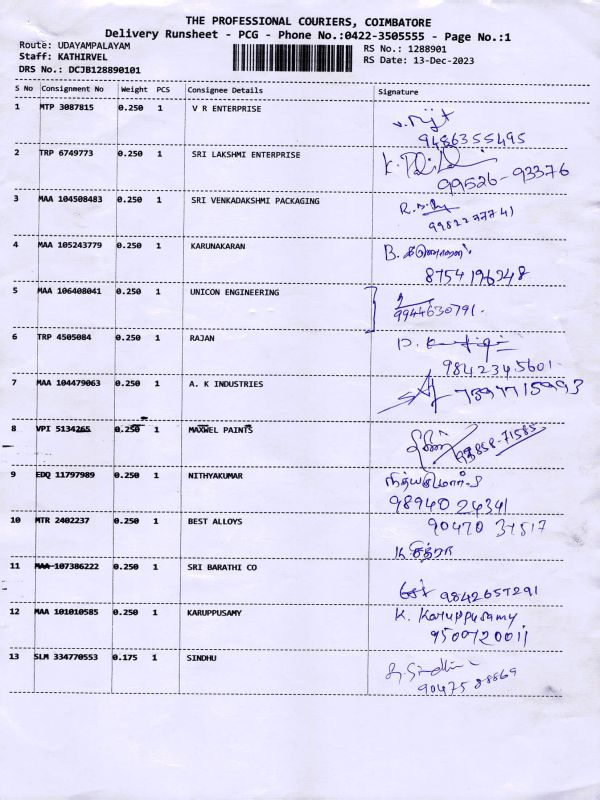 THE PROFESSIONAL COURIERS, COIMBATORE
Delivery Runsheet - PCG - Phone No.:0422-3505555 - Page No.:1
Route: UDAYAMPALAYAM
RS No.: 1288901
Staff: KATHIRVEL
RS Date: 13-Dec-2023
DRS No.: DCJB128890101
S No Consignment No Weight PCS Consignee Details Signature
1 MTP 3087815 0.250 1 V R ENTERPRISE
9486355495
2 TRP 6749773 0.250 1 SRI LAKSHMI ENTERPRISE
99526-93376
3 MAA 104508483 0.250 1 SRI VENKADAKSHMI PACKAGING
9982297741
4 MAA 105243779 0.250 1 KARUNAKARAN B.
8754196248
5 MAA 106408041 0.250 1 UNICON ENGINEERING
9944630791.
6 TRP 4505084 0.250 1 RAJAN
9842345601
7 MAA 104479063 0.250 1 A. K INDUSTRIES 7397715993
8 VPI 5134265 0.250 1 MAXWEL PAINTS
9 EDQ 11797989 0.250 1 NITHYAKUMAR
9894024341
10 MTR 2402237 0.250 1 BEST ALLOYS
K சித்ரா
11 MAA 107386222 0.250 1 SRI BARATHI CO
9842657291
12 MAA 101010585 0.250 1 KARUPPUSAMY K. Karuppusamy
9500720011
13 SLM 334770553 0.175 1 SINDHU S. Sindhu
9047588869